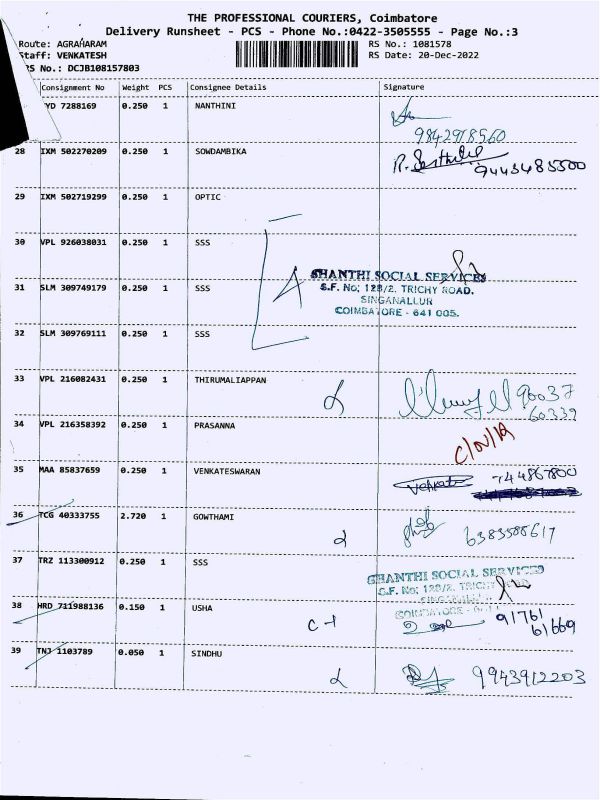 THE PROFESSIONAL COURIERS, Coimbatore
Delivery Runsheet - PCS - Phone No.:0422-3505555 - Page No.:3
Route: AGRAHARAM RS No.: 1081578
Staff: VENKATESH RS Date: 20-Dec-2022
RS No.: DCJB108157803
Consignment No Weight PCS Consignee Details Signature
YD 7288169 0.250 1 NANTHINI
9842918560
28 IXM 502270209 0.250 1 SOWDAMBIKA
9443485500
29 IXM 502719299 0.250 1 OPTIC
30 VPL 926038031 0.250 1 SSS
SHANTHI SOCIAL SERVICES
31 SLM 309749179 0.250 1 SSS S.F. No: 128/2, TRICHY ROAD.
SINGANALLUR
COIMBATORE - 641 005.
4
32 SLM 309769111 0.250 1 SSS
33 VPL 216082431 0.250 1 THIRUMALIAPPAN
96037
60339
34 VPL 216358392 0.250 1 PRASANNA
35 MAA 85837659 0.250 1 VENKATESWARAN
Venkat 744867800
36 TCG 40333755 2.720 1 GOWTHAMI
6383588617
37 TRZ 113300912 0.250 1 SSS
SHANTHI SOCIAL SERVICES
S.F. No: 128/2, TRICHY ROAD
38 HRD 711988136 0.150 1 USHA
91761
61669
39 TNJ 1103789 0.050 1 SINDHU
9943912203